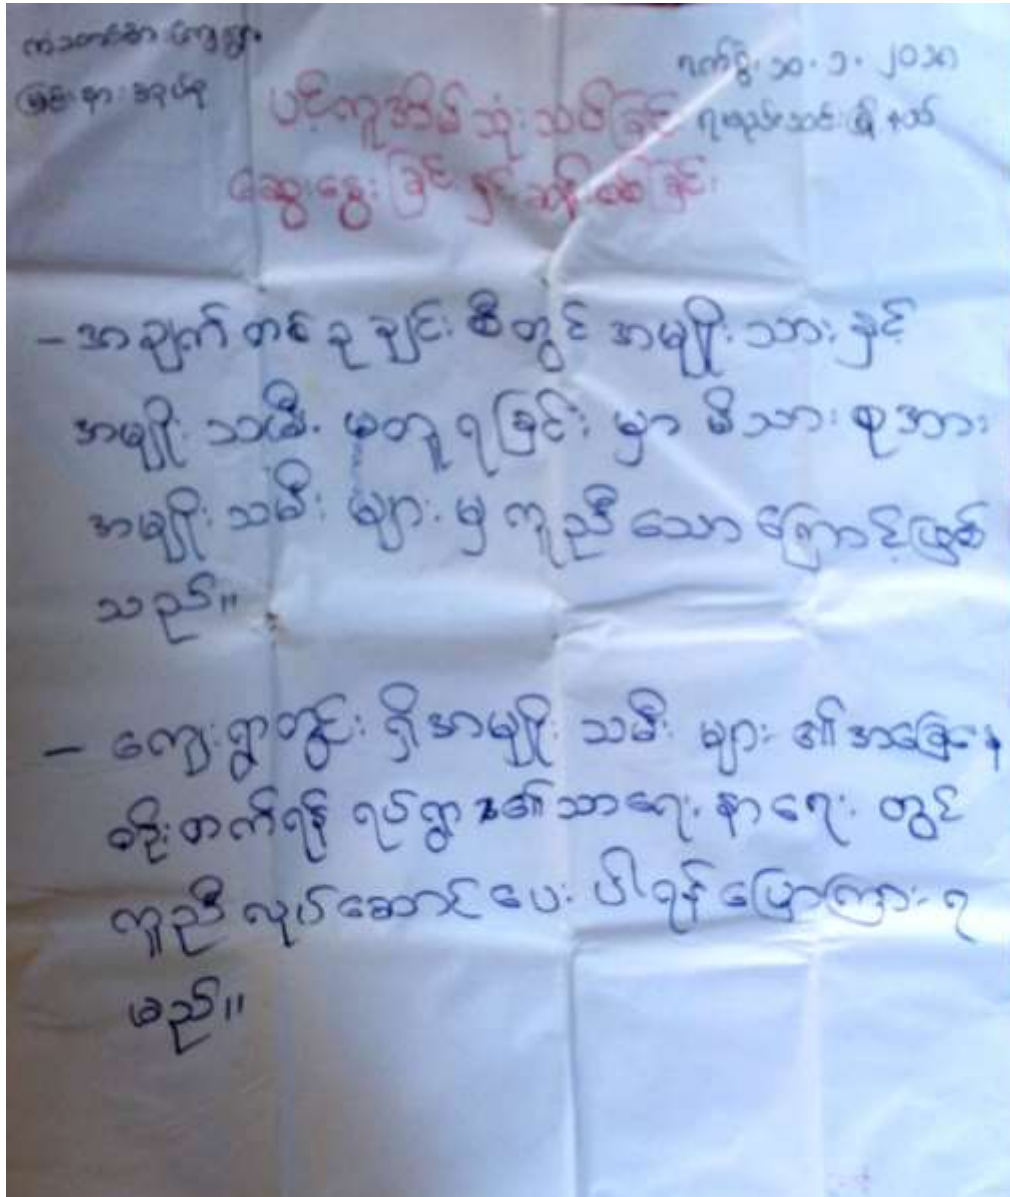 ကံသတင်စာ ကျေးရွာ
ရက်စွဲ၊ ၁၀.၁.၂၀၁၈
မြင်းနားအုပ်စု
ရမည်းသင်းမြို့နယ်
ပင့်ကူအိမ်သုံးသပ်ခြင်း
ဆွေးနွေးခြင်းနှင့် ဆန်းစစ်ခြင်း
- အချက်တစ်ခုချင်းစီတွင် အမျိုးသားနှင့်
အမျိုးသမီး မတူရခြင်းမှာ မိသားစုအား
အမျိုးသမီးများမှ ကူညီသောကြောင့်ဖြစ်
သည်။
- ကျေးရွာတွင်းရှိအမျိုးသမီးများ၏အခြေနေ
တိုးတက်ရန် ရပ်ရွာ၏သာရေးနာရေးတွင်
ကူညီလုပ်ဆောင်ပေးပါရန်ပြောကြားရ
မည်။